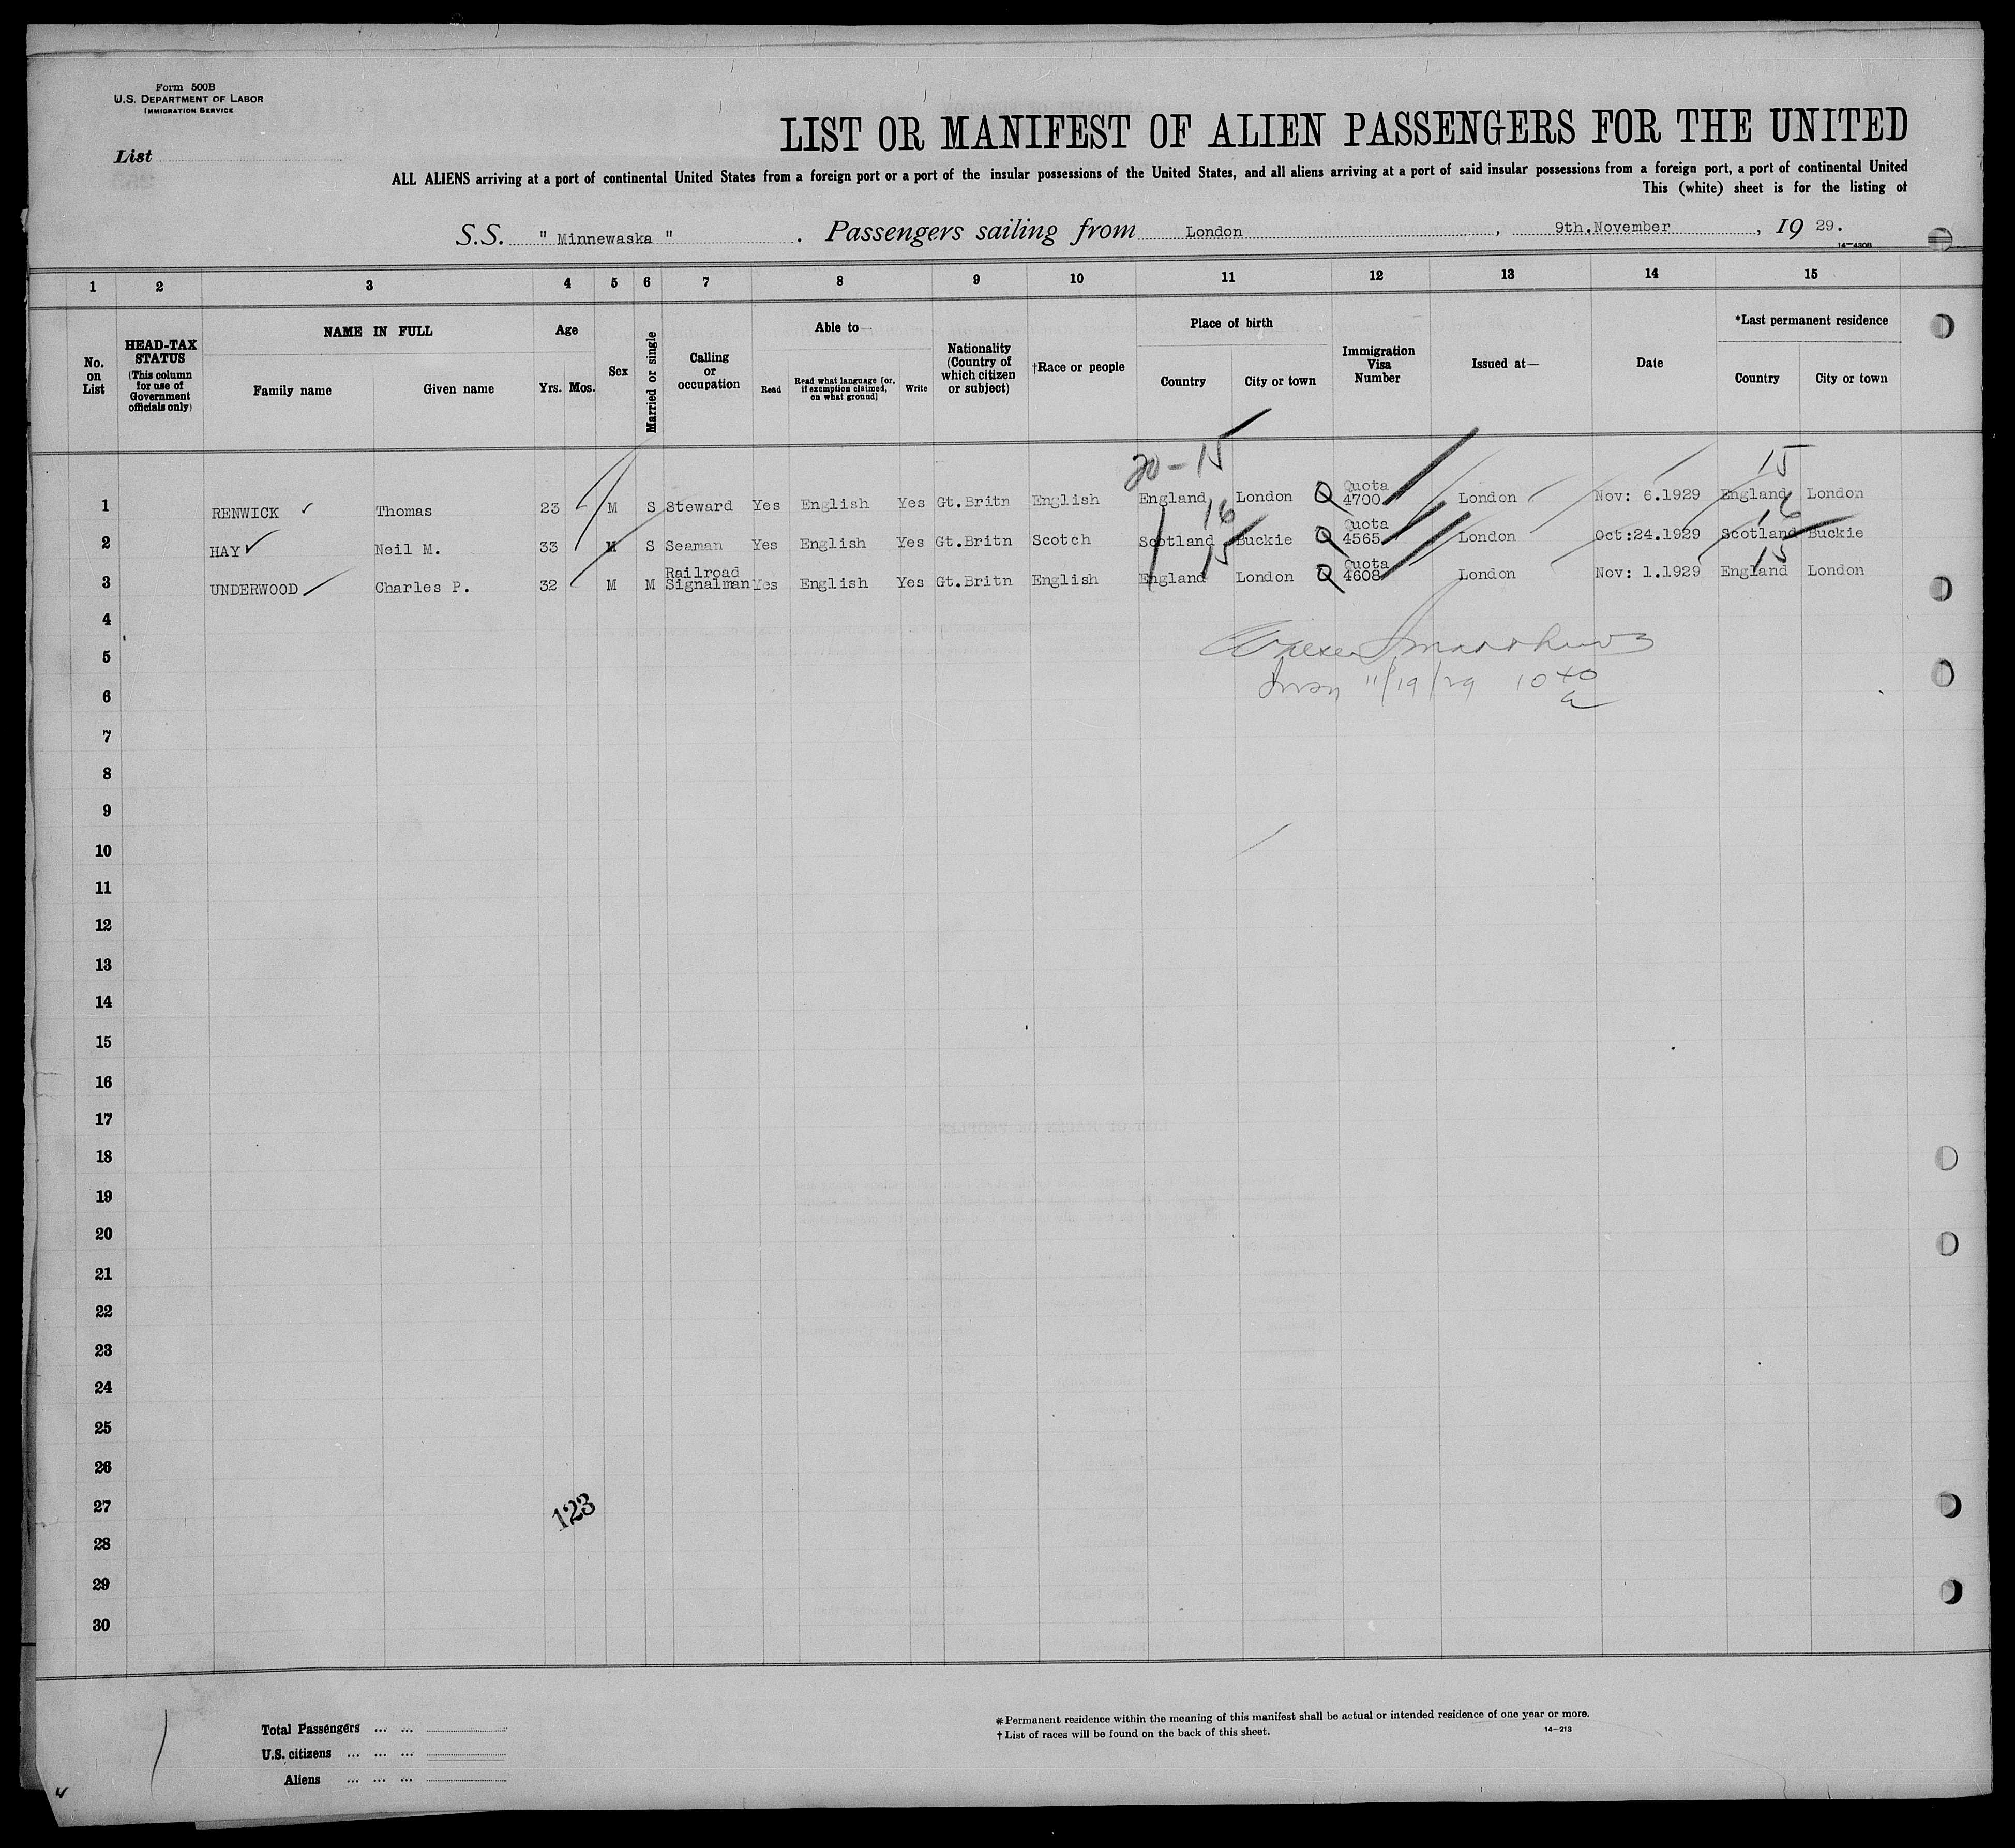 Form 500B
U.S. DEPARTMENT OF LABOR
IMMIGRATION SERVICE
List
LIST OR MANIFEST OF ALIEN PASSENGERS FOR THE UNITED
ALL ALIENS arriving at a port of continental United States from a foreign port or a port of the insular possessions of the United States, and all aliens arriving at a port of said insular possessions from a foreign port, a port of continental United
This (white) sheet is for the listing of
S.S. " Minnewaska " . Passengers sailing from London , 9th.November , 19 29.
14—4308
1 2 3 4 5 6 7 8 9 10 11 12 13 14 15
No. on List
HEAD-TAX STATUS (This column for use of Government officials only)
NAME IN FULL
Family name Given name
Age
Yrs. Mos.
Sex
Married or single
Calling or occupation
Able to—
Read Read what language [or, if exemption claimed, on what ground] Write
Nationality (Country of which citizen or subject)
†Race or people
Place of birth
Country City or town
Immigration Visa Number
Issued at—
Date
*Last permanent residence
Country City or town
20 - 15 15
1 RENWICK Thomas 23 M S Steward Yes English Yes Gt.Britn English England London Q Quota 4700 London Nov: 6.1929 England London
16 16
2 HAY Neil M. 33 M S Seaman Yes English Yes Gt.Britn Scotch Scotland Buckie Q Quota 4565 London Oct:24.1929 Scotland Buckie
15 15
3 UNDERWOOD Charles P. 32 M M Railroad Signalman Yes English Yes Gt.Britn English England London Q Quota 4608 London Nov: 1.1929 England London
4
5
11/19/29 10 40 a
6
7
8
9
10
11
12
13
14
15
16
17
18
19
20
21
22
23
24
25
26
27
123
28
29
30
Total Passengers ... ...
U.S. citizens ... ... ...
Aliens ... ... ...
* Permanent residence within the meaning of this manifest shall be actual or intended residence of one year or more.
† List of races will be found on the back of this sheet.
14—213